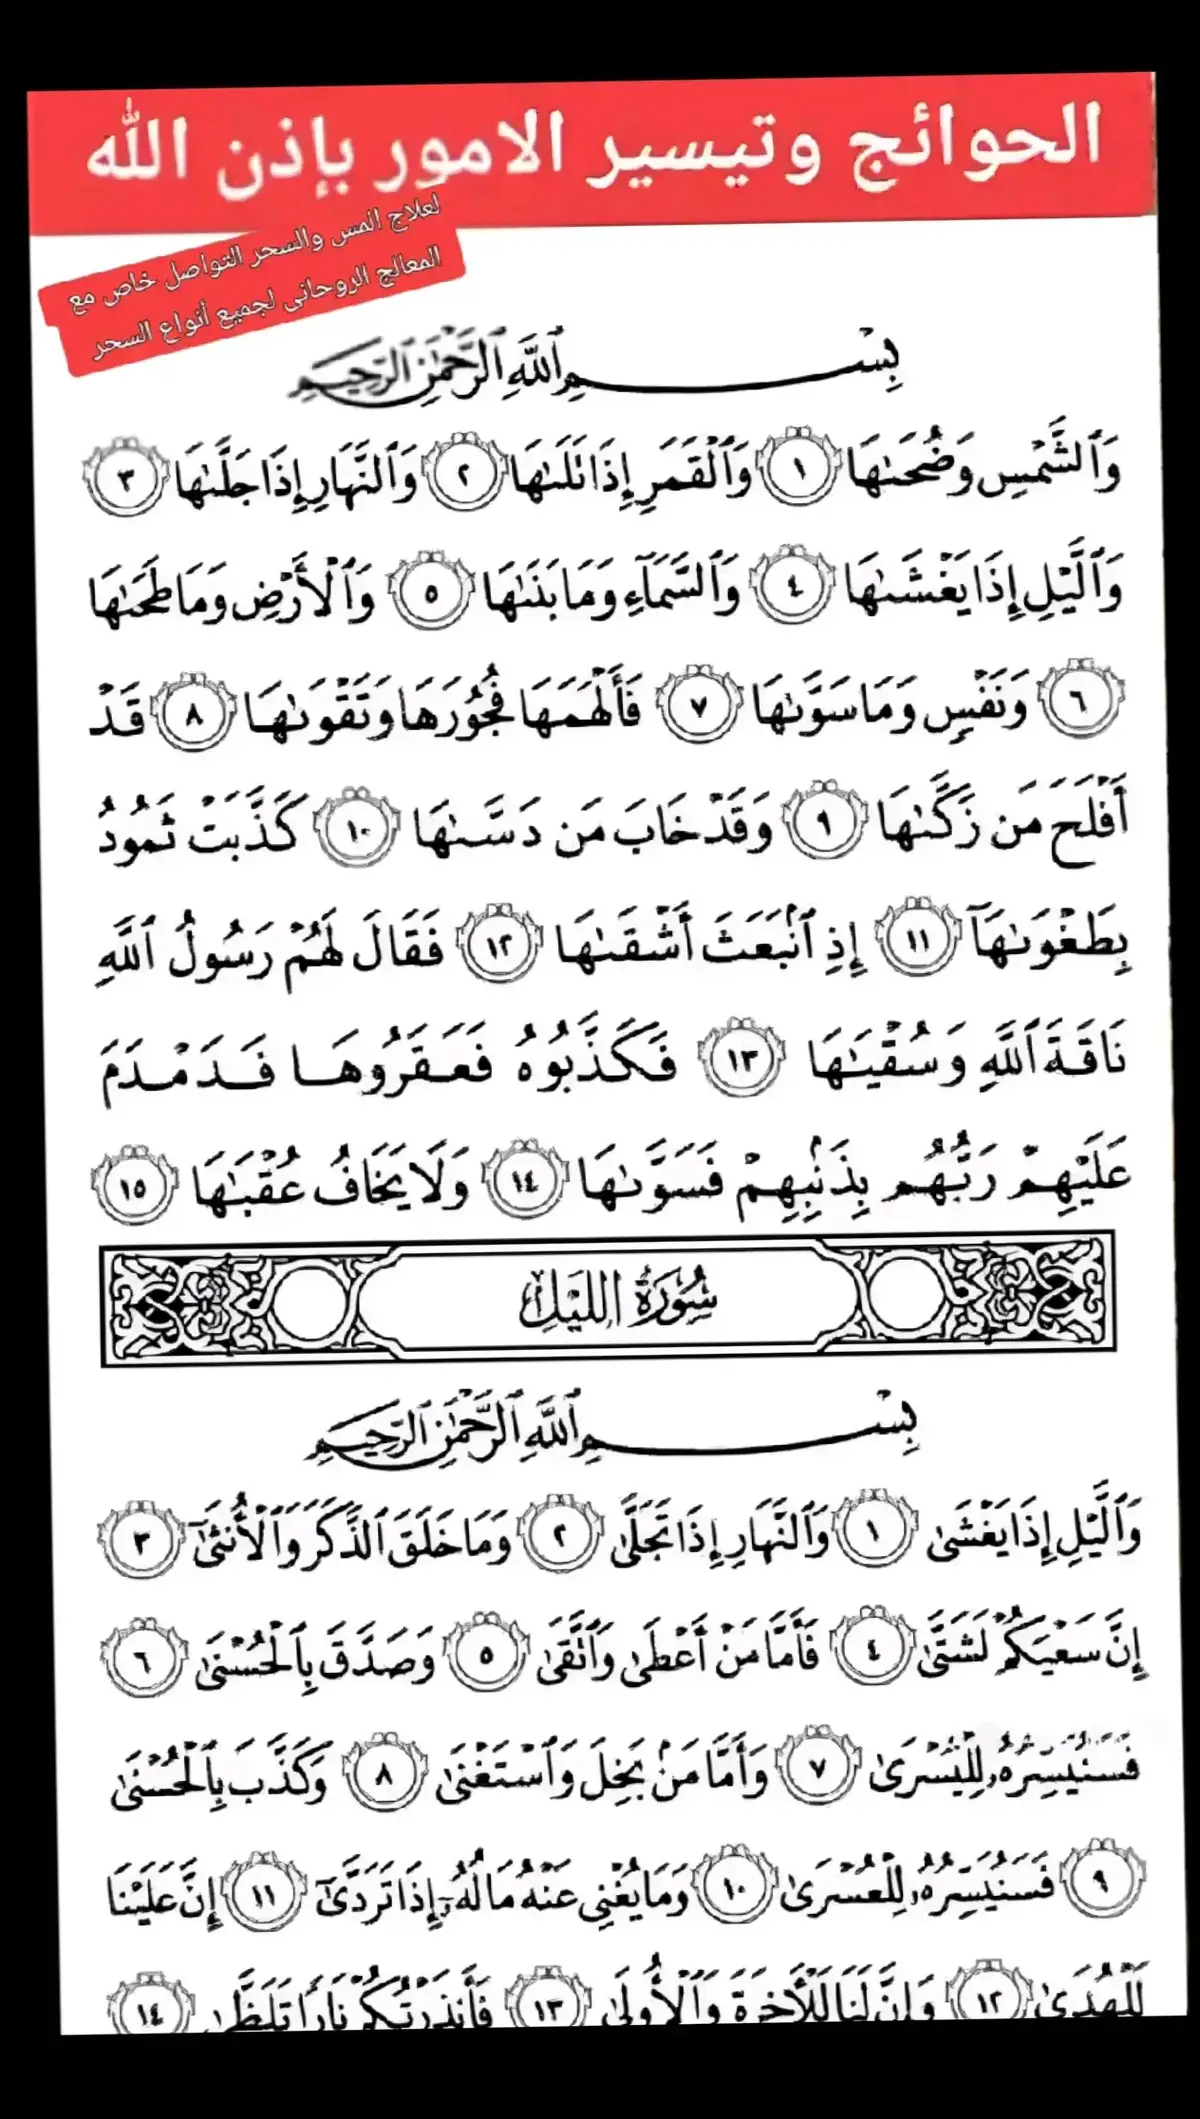 الحوائج وتيسير الامور بإذن الله
لعلاج المس والسحر التواصل خاص مع
المعالج الروحانى لجميع أنواع السحر
بِسْمِ ٱللَّهِ ٱلرَّحْمَٰنِ ٱلرَّحِيمِ
وَٱلشَّمْسِ وَضُحَىٰهَا ١ وَٱلْقَمَرِ إِذَا تَلَىٰهَا ٢ وَٱلنَّهَارِ إِذَا جَلَّىٰهَا ٣
وَٱلَّيْلِ إِذَا يَغْشَىٰهَا ٤ وَٱلسَّمَآءِ وَمَا بَنَىٰهَا ٥ وَٱلْأَرْضِ وَمَا طَحَىٰهَا
٦ وَنَفْسٍ وَمَا سَوَّىٰهَا ٧ فَأَلْهَمَهَا فُجُورَهَا وَتَقْوَىٰهَا ٨ قَدْ
أَفْلَحَ مَن زَكَّىٰهَا ٩ وَقَدْ خَابَ مَن دَسَّىٰهَا ١٠ كَذَّبَتْ ثَمُودُ
بِطَغْوَىٰهَآ ١١ إِذِ ٱنۢبَعَثَ أَشْقَىٰهَا ١٢ فَقَالَ لَهُمْ رَسُولُ ٱللَّهِ
نَاقَةَ ٱللَّهِ وَسُقْيَٰهَا ١٣ فَكَذَّبُوهُ فَعَقَرُوهَا فَدَمْدَمَ
عَلَيْهِمْ رَبُّهُم بِذَنۢبِهِمْ فَسَوَّىٰهَا ١٤ وَلَا يَخَافُ عُقْبَٰهَا ١٥
سُورَةُ اللَّيْلِ
بِسْمِ ٱللَّهِ ٱلرَّحْمَٰنِ ٱلرَّحِيمِ
وَٱلَّيْلِ إِذَا يَغْشَىٰ ١ وَٱلنَّهَارِ إِذَا تَجَلَّىٰ ٢ وَمَا خَلَقَ ٱلذَّكَرَ وَٱلْأُنثَىٰٓ ٣
إِنَّ سَعْيَكُمْ لَشَتَّىٰ ٤ فَأَمَّا مَنْ أَعْطَىٰ وَٱتَّقَىٰ ٥ وَصَدَّقَ بِٱلْحُسْنَىٰ ٦
فَسَنُيَسِّرُهُۥ لِلْيُسْرَىٰ ٧ وَأَمَّا مَنۢ بَخِلَ وَٱسْتَغْنَىٰ ٨ وَكَذَّبَ بِٱلْحُسْنَىٰ
٩ فَسَنُيَسِّرُهُۥ لِلْعُسْرَىٰ ١٠ وَمَا يُغْنِى عَنْهُ مَالُهُۥٓ إِذَا تَرَدَّىٰٓ ١١ إِنَّ عَلَيْنَا
لَلْهُدَىٰ ١٢ وَإِنَّ لَنَا لَلْءَاخِرَةَ وَٱلْأُولَىٰ ١٣ فَأَنذَرْتُكُمْ نَارًا تَلَظَّىٰ ١٤